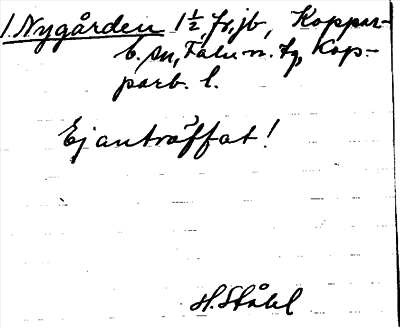 1. Nygården 1½, fr.jb, Koppar-
b. sn, Falu n. tg, Kop-
parb. l.
Ej anträffat!
H. Ståhl